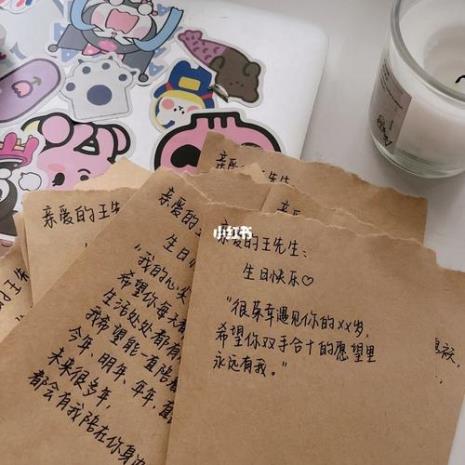 亲爱的王先生：
生日快乐♡
"很荣幸遇见你的xx岁，
希望你双手合十的愿望里
永远有我。"
小红书
亲爱的
生日快
"我的心火
希望你每天
生活处处都有
我希望能一直陪
今年、明年、年年，直
未来很多年，
都会有我陪在你身边
亲爱的王
亲爱的王先生